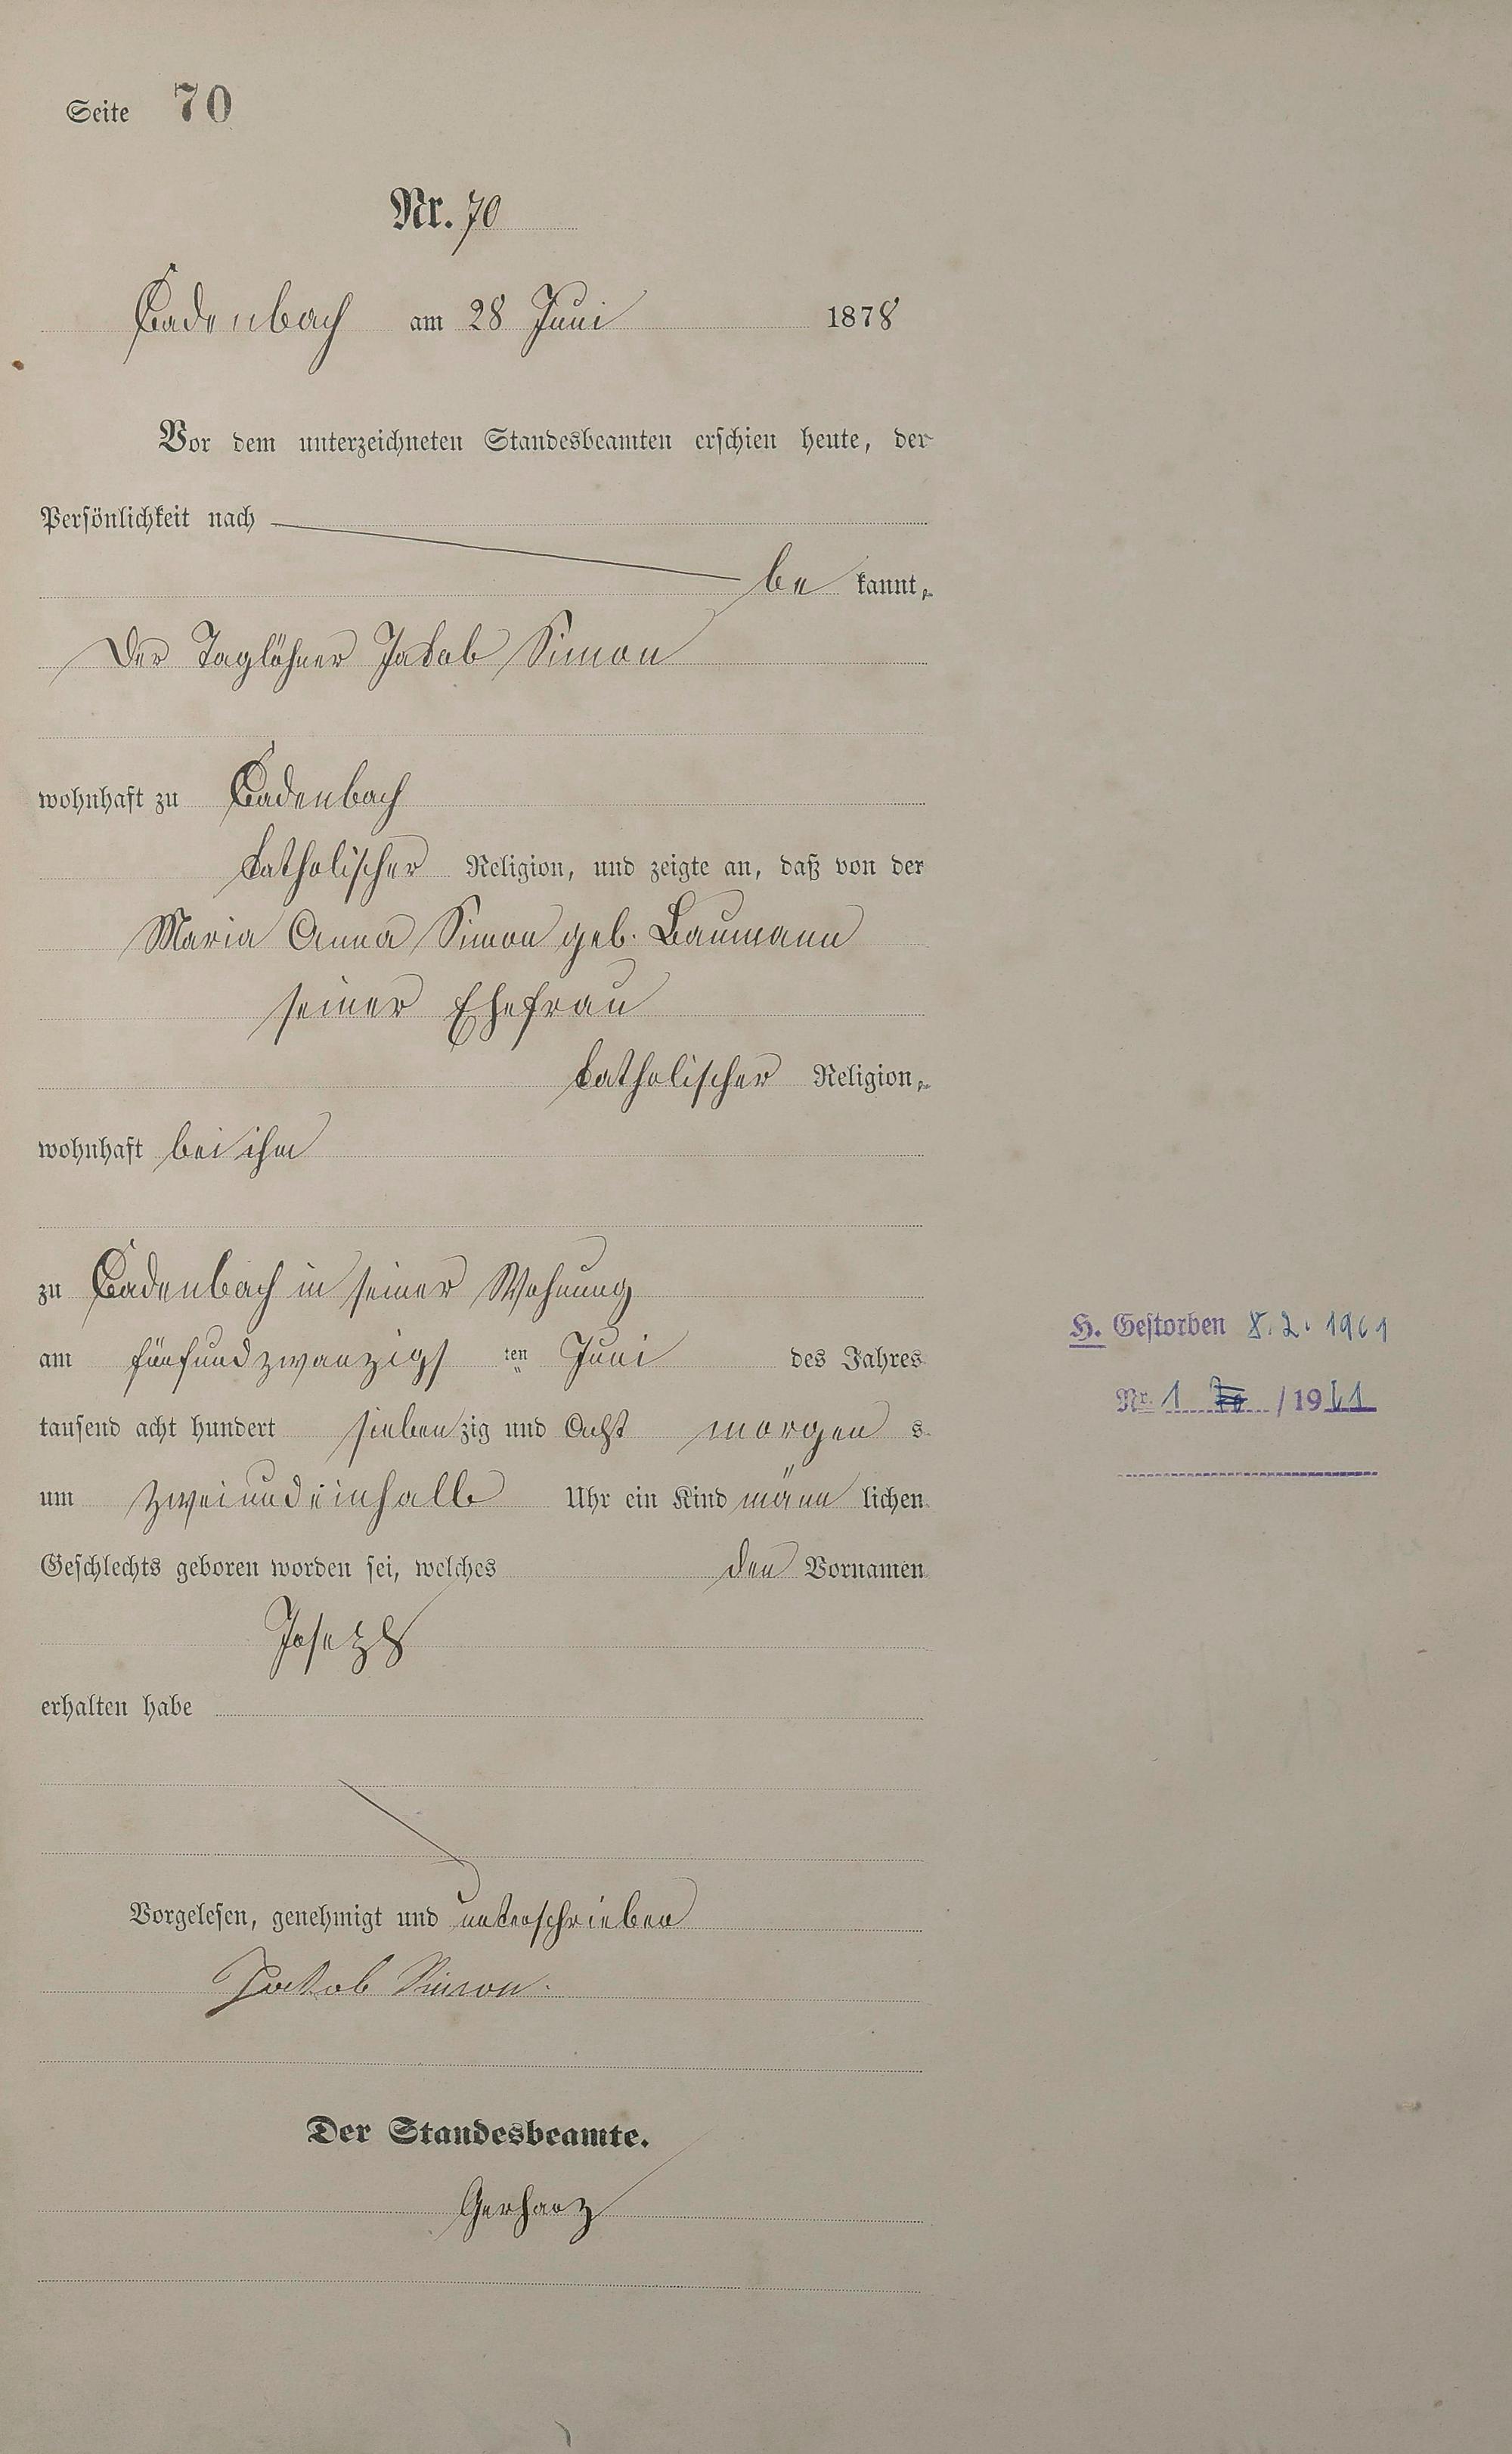 Seite 70
Nr. 70
Cadenbach am 28 Juni 1878
Vor dem unterzeichneten Standesbeamten erschien heute, der
Persönlichkeit nach
be kannt,
Der Taglöhner Jakob Simon
wohnhaft zu Cadenbach
katholischer Religion, und zeigte an, daß von der
Maria Anna Simon geb. Baumann
seiner Ehefrau
katholischer Religion,
wohnhaft bei ihm
zu Cadenbach in seiner Wohnung
am fünfundzwanzigs ten Juni des Jahres
tausend acht hundert siebenzig und Acht morgen s
um zweiundeinhalb Uhr ein Kind männ lichen
Geschlechts geboren worden sei, welches den Vornamen
Joseph
erhalten habe
Vorgelesen, genehmigt und unterschrieben
Jakob Simon.
Der Standesbeamte.
Gerharz
H. Gestorben 8.2.1961
Nr. 1 /1961